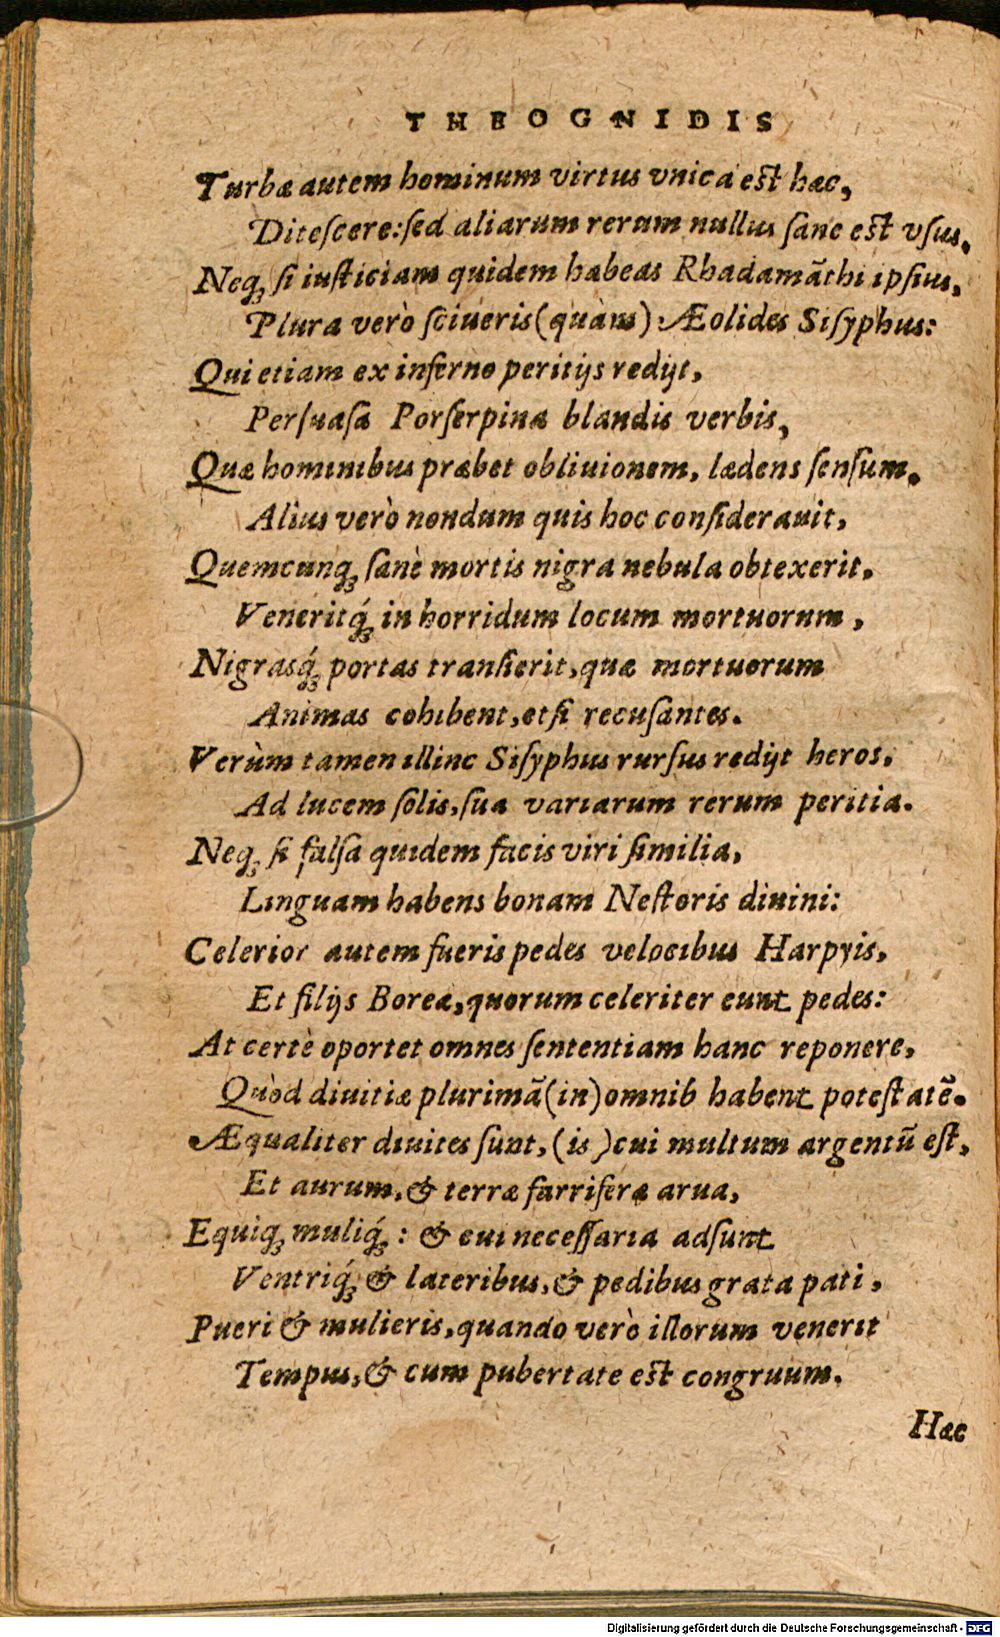 THEOGNIDIS
Turbæ autem hominum virtus vnica est hæc,
Ditescere: sed aliarum rerum nullus sanè est vsus.
Neq; si iusticiam quidem habeas Rhadamāthi ipsius,
Plura verò sciueris (quàm) Æolides Sisyphus:
Qui etiam ex inferno peritijs redijt,
Persuasa Porserpina blandis verbis,
Quæ hominibus præbet obliuionem, lædens sensum.
Alius verò nondum quis hoc considerauit,
Quemcunq; sanè mortis nigra nebula obtexerit.
Veneritq́; in horridum locum mortuorum,
Nigrasq́; portas transierit, quæ mortuorum
Animas cohibent, etsi recusantes.
Verùm tamen illinc Sisyphus rursus redijt heros.
Ad lucem solis, sua variarum rerum peritia.
Neq; si falsa quidem facis viri similia,
Linguam habens bonam Nestoris diuini:
Celerior autem fueris pedes velocibus Harpyis,
Et filijs Boreæ, quorum celeriter eunt pedes:
At certè oportet omnes sententiam hanc reponere,
Quòd diuitiæ plurimā (in) omnib habent potestatē.
Æqualiter diuites sunt, (is) cui multum argentū est,
Et aurum, & terræ farriferæ arua,
Equiq; muliq́; : & cui necessaria adsunt
Ventriq́; & lateribus, & pedibus grata pati,
Pueri & mulieris, quando verò illorum venerit
Tempus, & cum pubertate est congruum.
Hæc
Digitalisierung gefördert durch die Deutsche Forschungsgemeinschaft - DFG